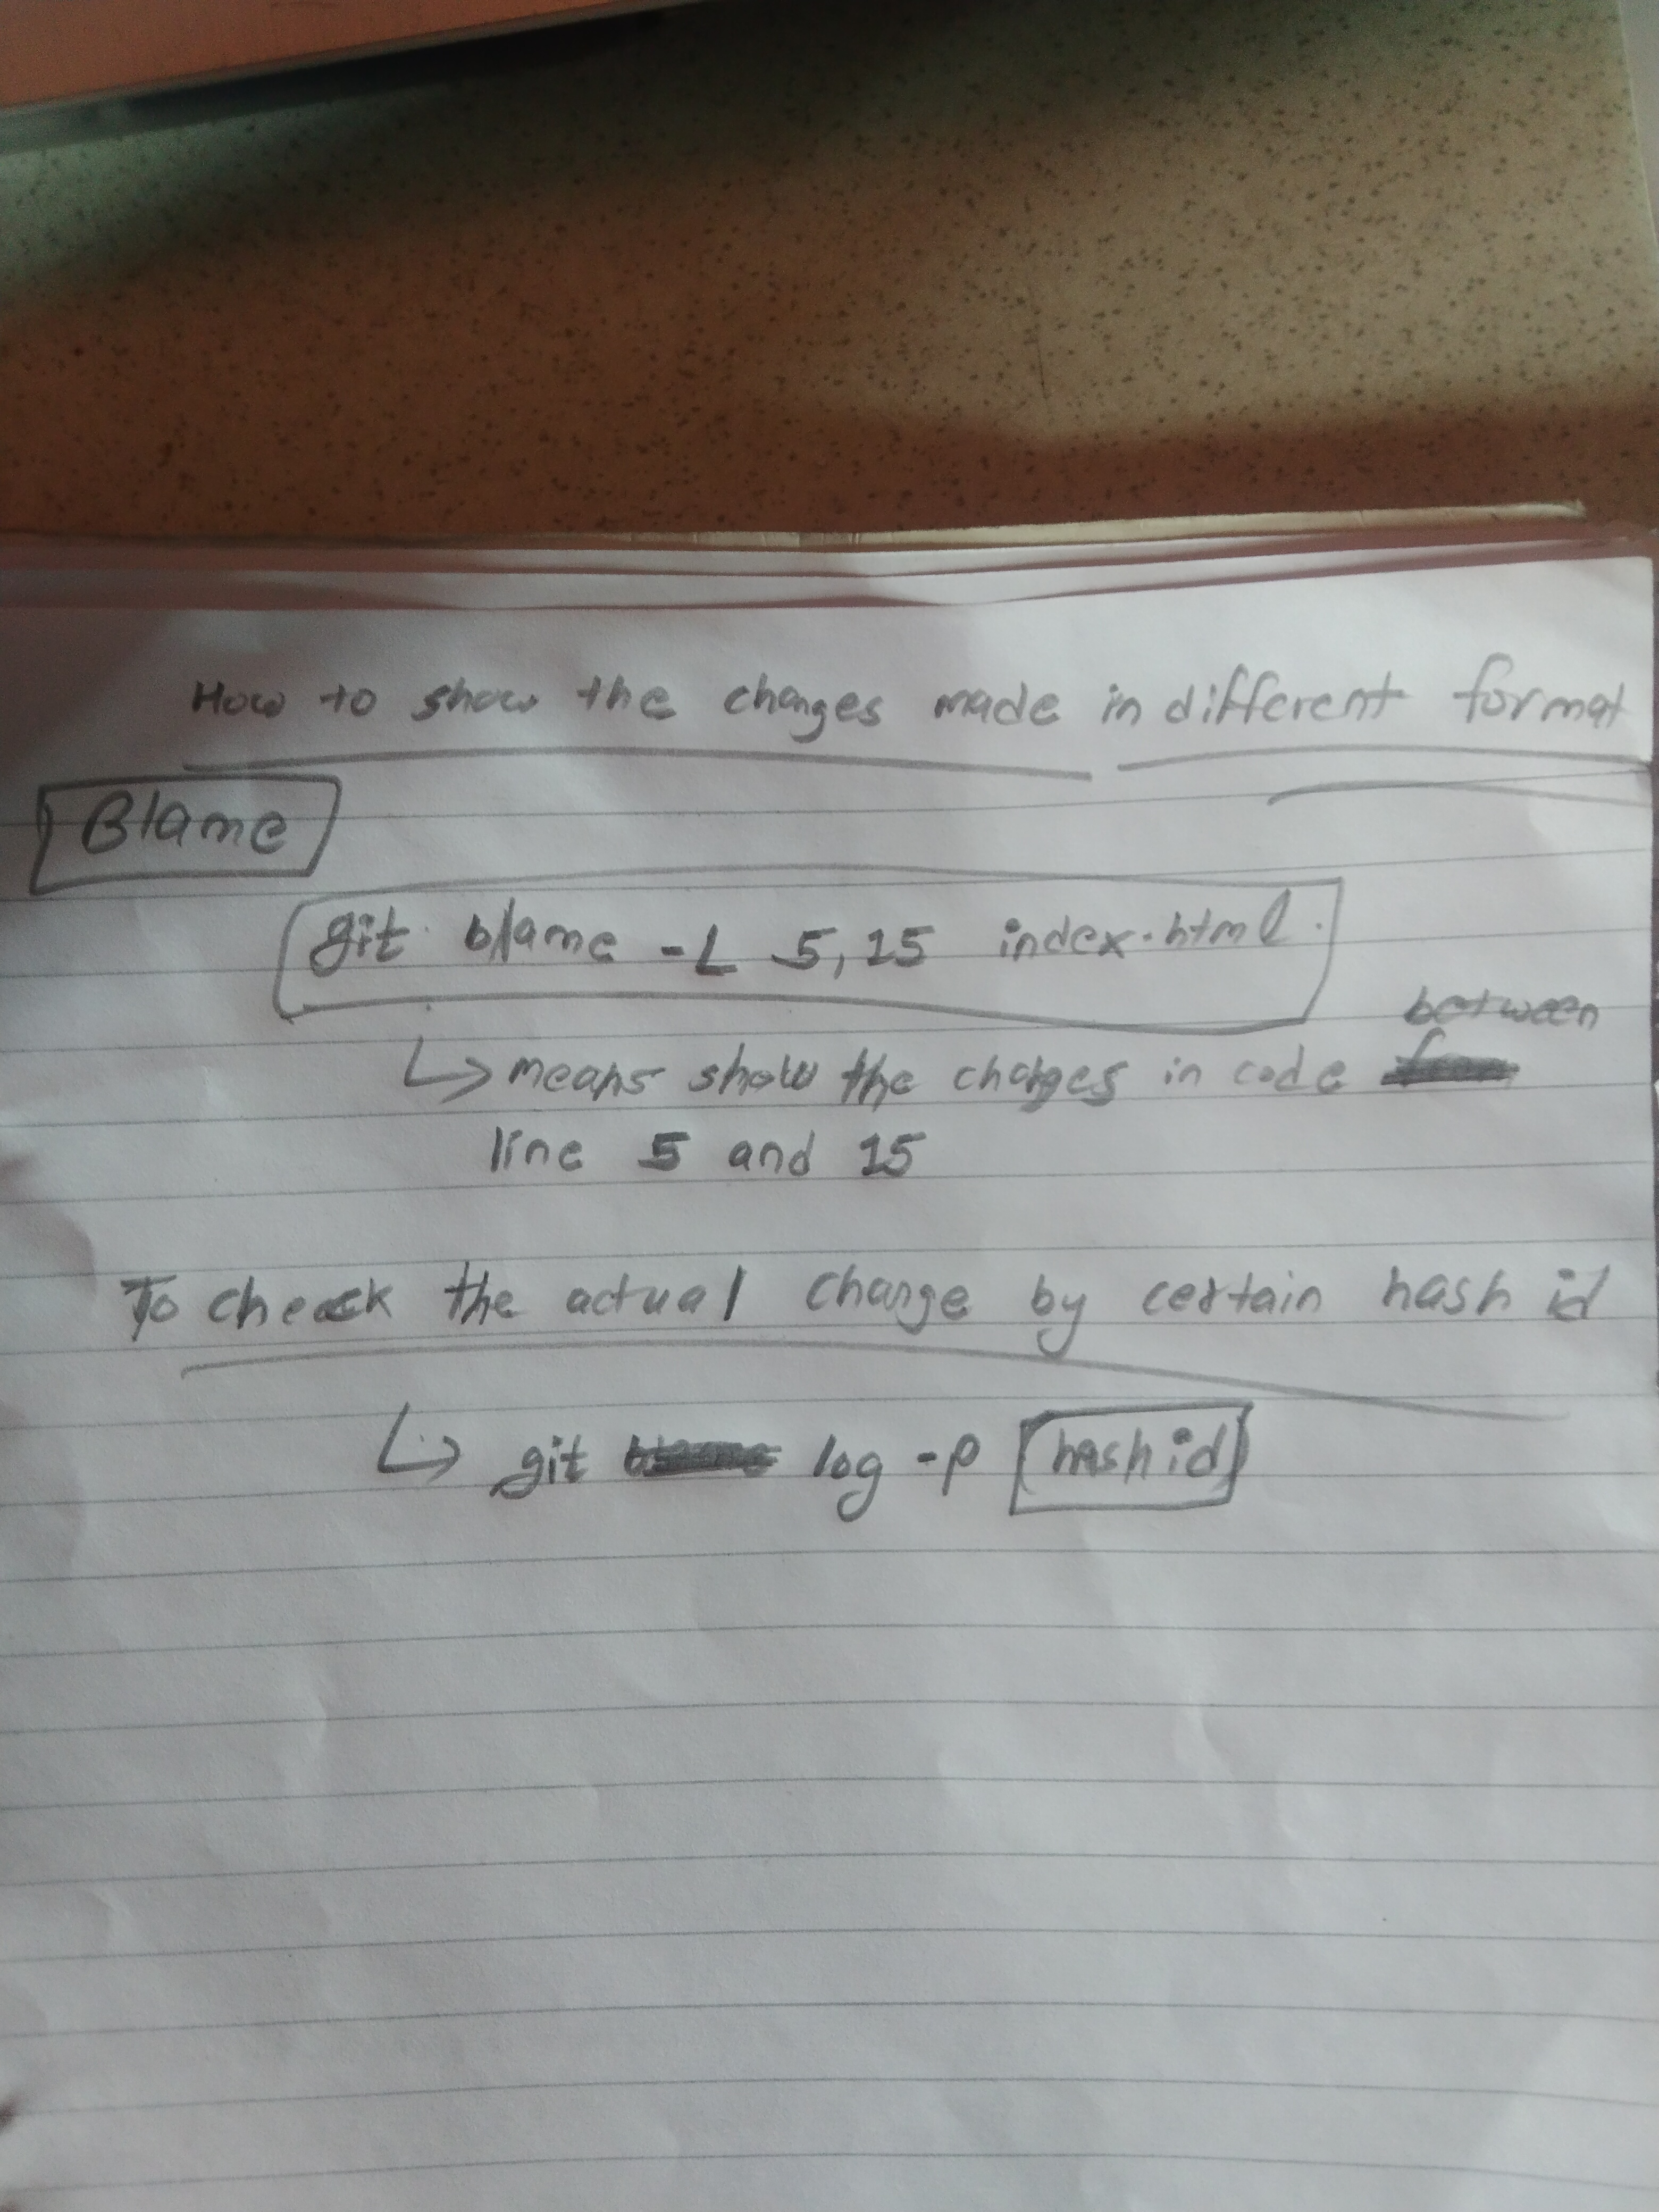 How to show the changes made in different format
Blame
git blame -L 5,15 index.html.
between
↳ means show the changes in code
line 5 and 15
To check the actual change by certain hash id
↳ git log -p hash id